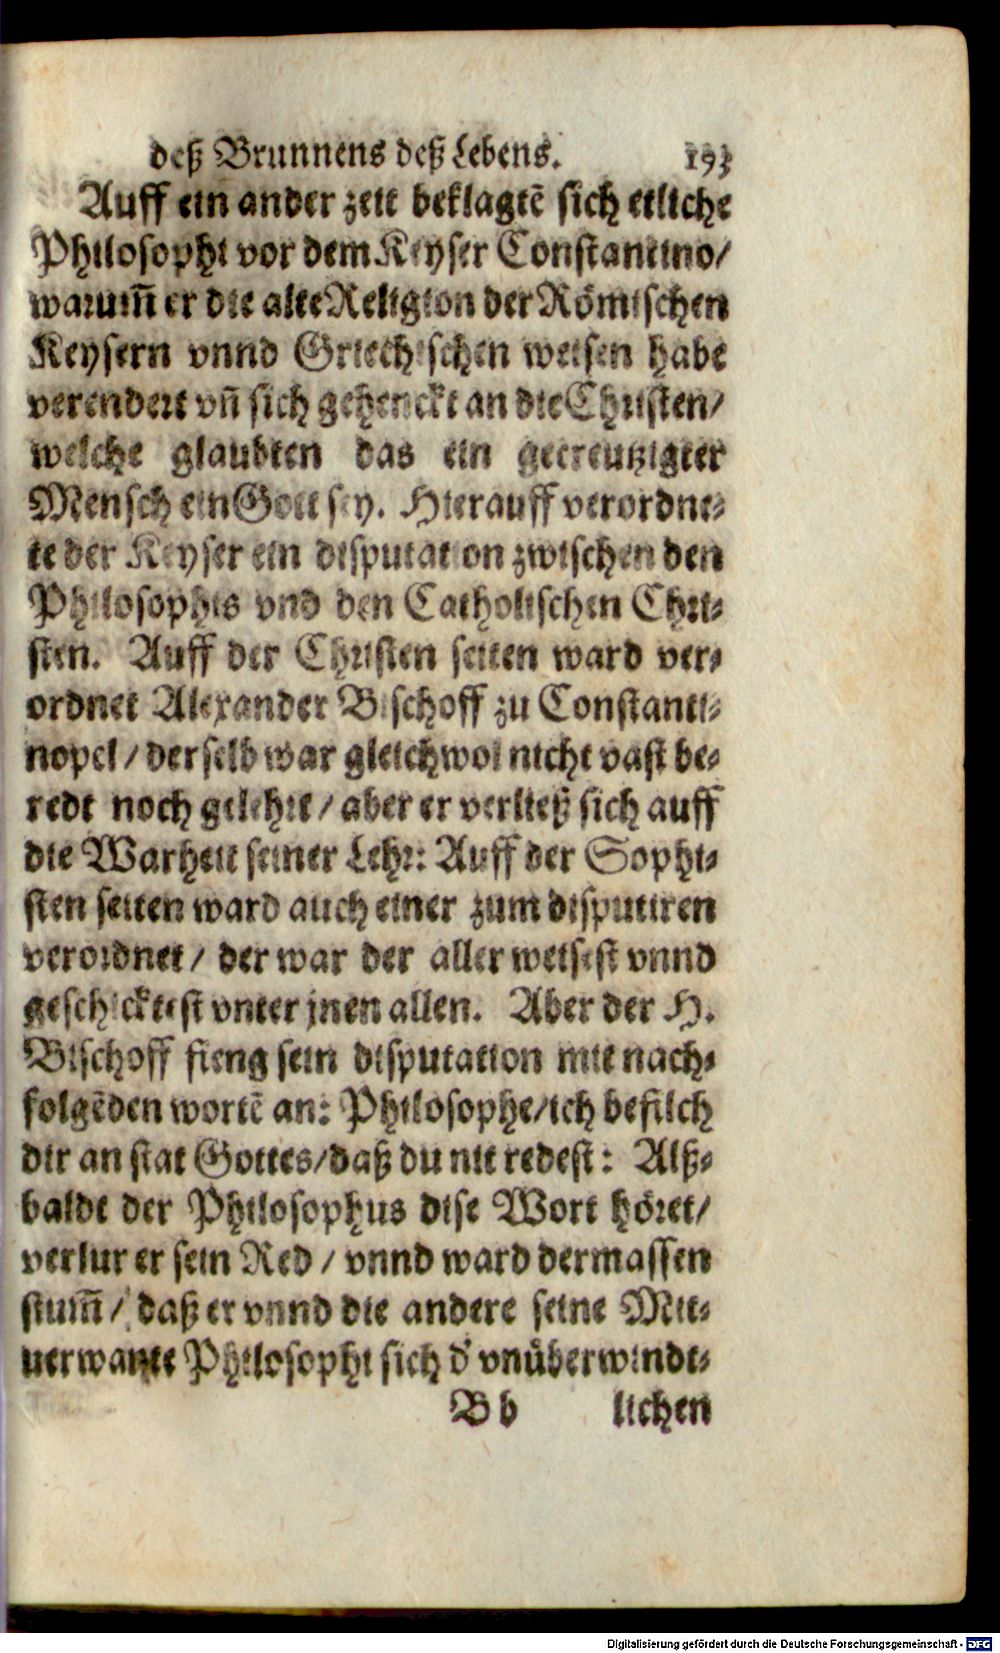 deß Brunnens deß Lebens. 193
Auff ein ander zeit beklagtẽ sich etliche
Philosophi vor dem Keyser Constantino/
warum̃ er die alte Religion der Römischen
Keysern vnnd Griechischen weisen habe
verendert vñ sich gehenckt an die Christen/
welche glaubten das ein gecreutzigter
Mensch ein Gott sey. Hierauff verordne-
te der Keyser ein disputation zwischen den
Philosophis vnd den Catholischen Chri-
sten. Auff der Christen seiten ward ver-
ordnet Alexander Bischoff zu Constanti-
nopel/ derselb war gleichwol nicht vast be-
redt noch gelehrt/ aber er verließ sich auff
die Warheit seiner Lehr: Auff der Sophi-
sten seiten ward auch einer zum disputiren
verordnet/ der war der aller weisest vnnd
geschicktest vnter jnen allen. Aber der H.
Bischoff fieng sein disputation mit nach-
folgẽden wortẽ an: Philosophe/ich befilch
dir an stat Gottes/daß du nit redest: Alß-
baldt der Philosophus dise Wort höret/
verlur er sein Red/ vnnd ward dermassen
stum̃/ daß er vnnd die andere seine Mit-
uerwante Philosophi sich d' vnüberwindt-
B b lichen
Digitalisierung gefördert durch die Deutsche Forschungsgemeinschaft - DFG